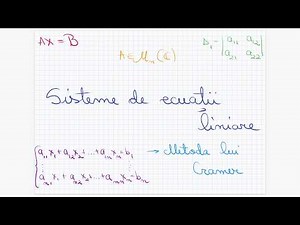 AX = B
A ∈ M_n(ℂ)
D_1 = |a_11 a_12|
|a_21 a_22|
Sisteme de ecuații
liniare
{a_11 x_1 + a_12 x_2 + ... + a_1n x_n = b_1
→ Metoda lui
Cramer